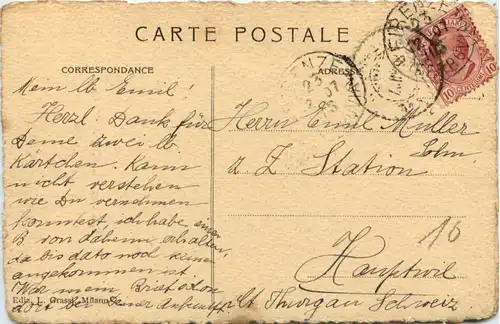 CARTE POSTALE
CORRESPONDANCE
ADRESSE
FIRENZE
10 10
Mein lb. Emil!
Herzl. Dank für
Deine zwei lb.
Kärtchen. Kann
nicht verstehen
wie Du vernehmen
konntest, ich habe einen
B von daheim erhalten,
da bis dato noch keiner
angekommen ist
War mein Brief schon
dort bei Deiner Ankunft
Herrn Emil Müller
z. Z. Station
Hauptwil
Kt Thurgau Schweiz
16
Ediz. L. Grassi, Milano